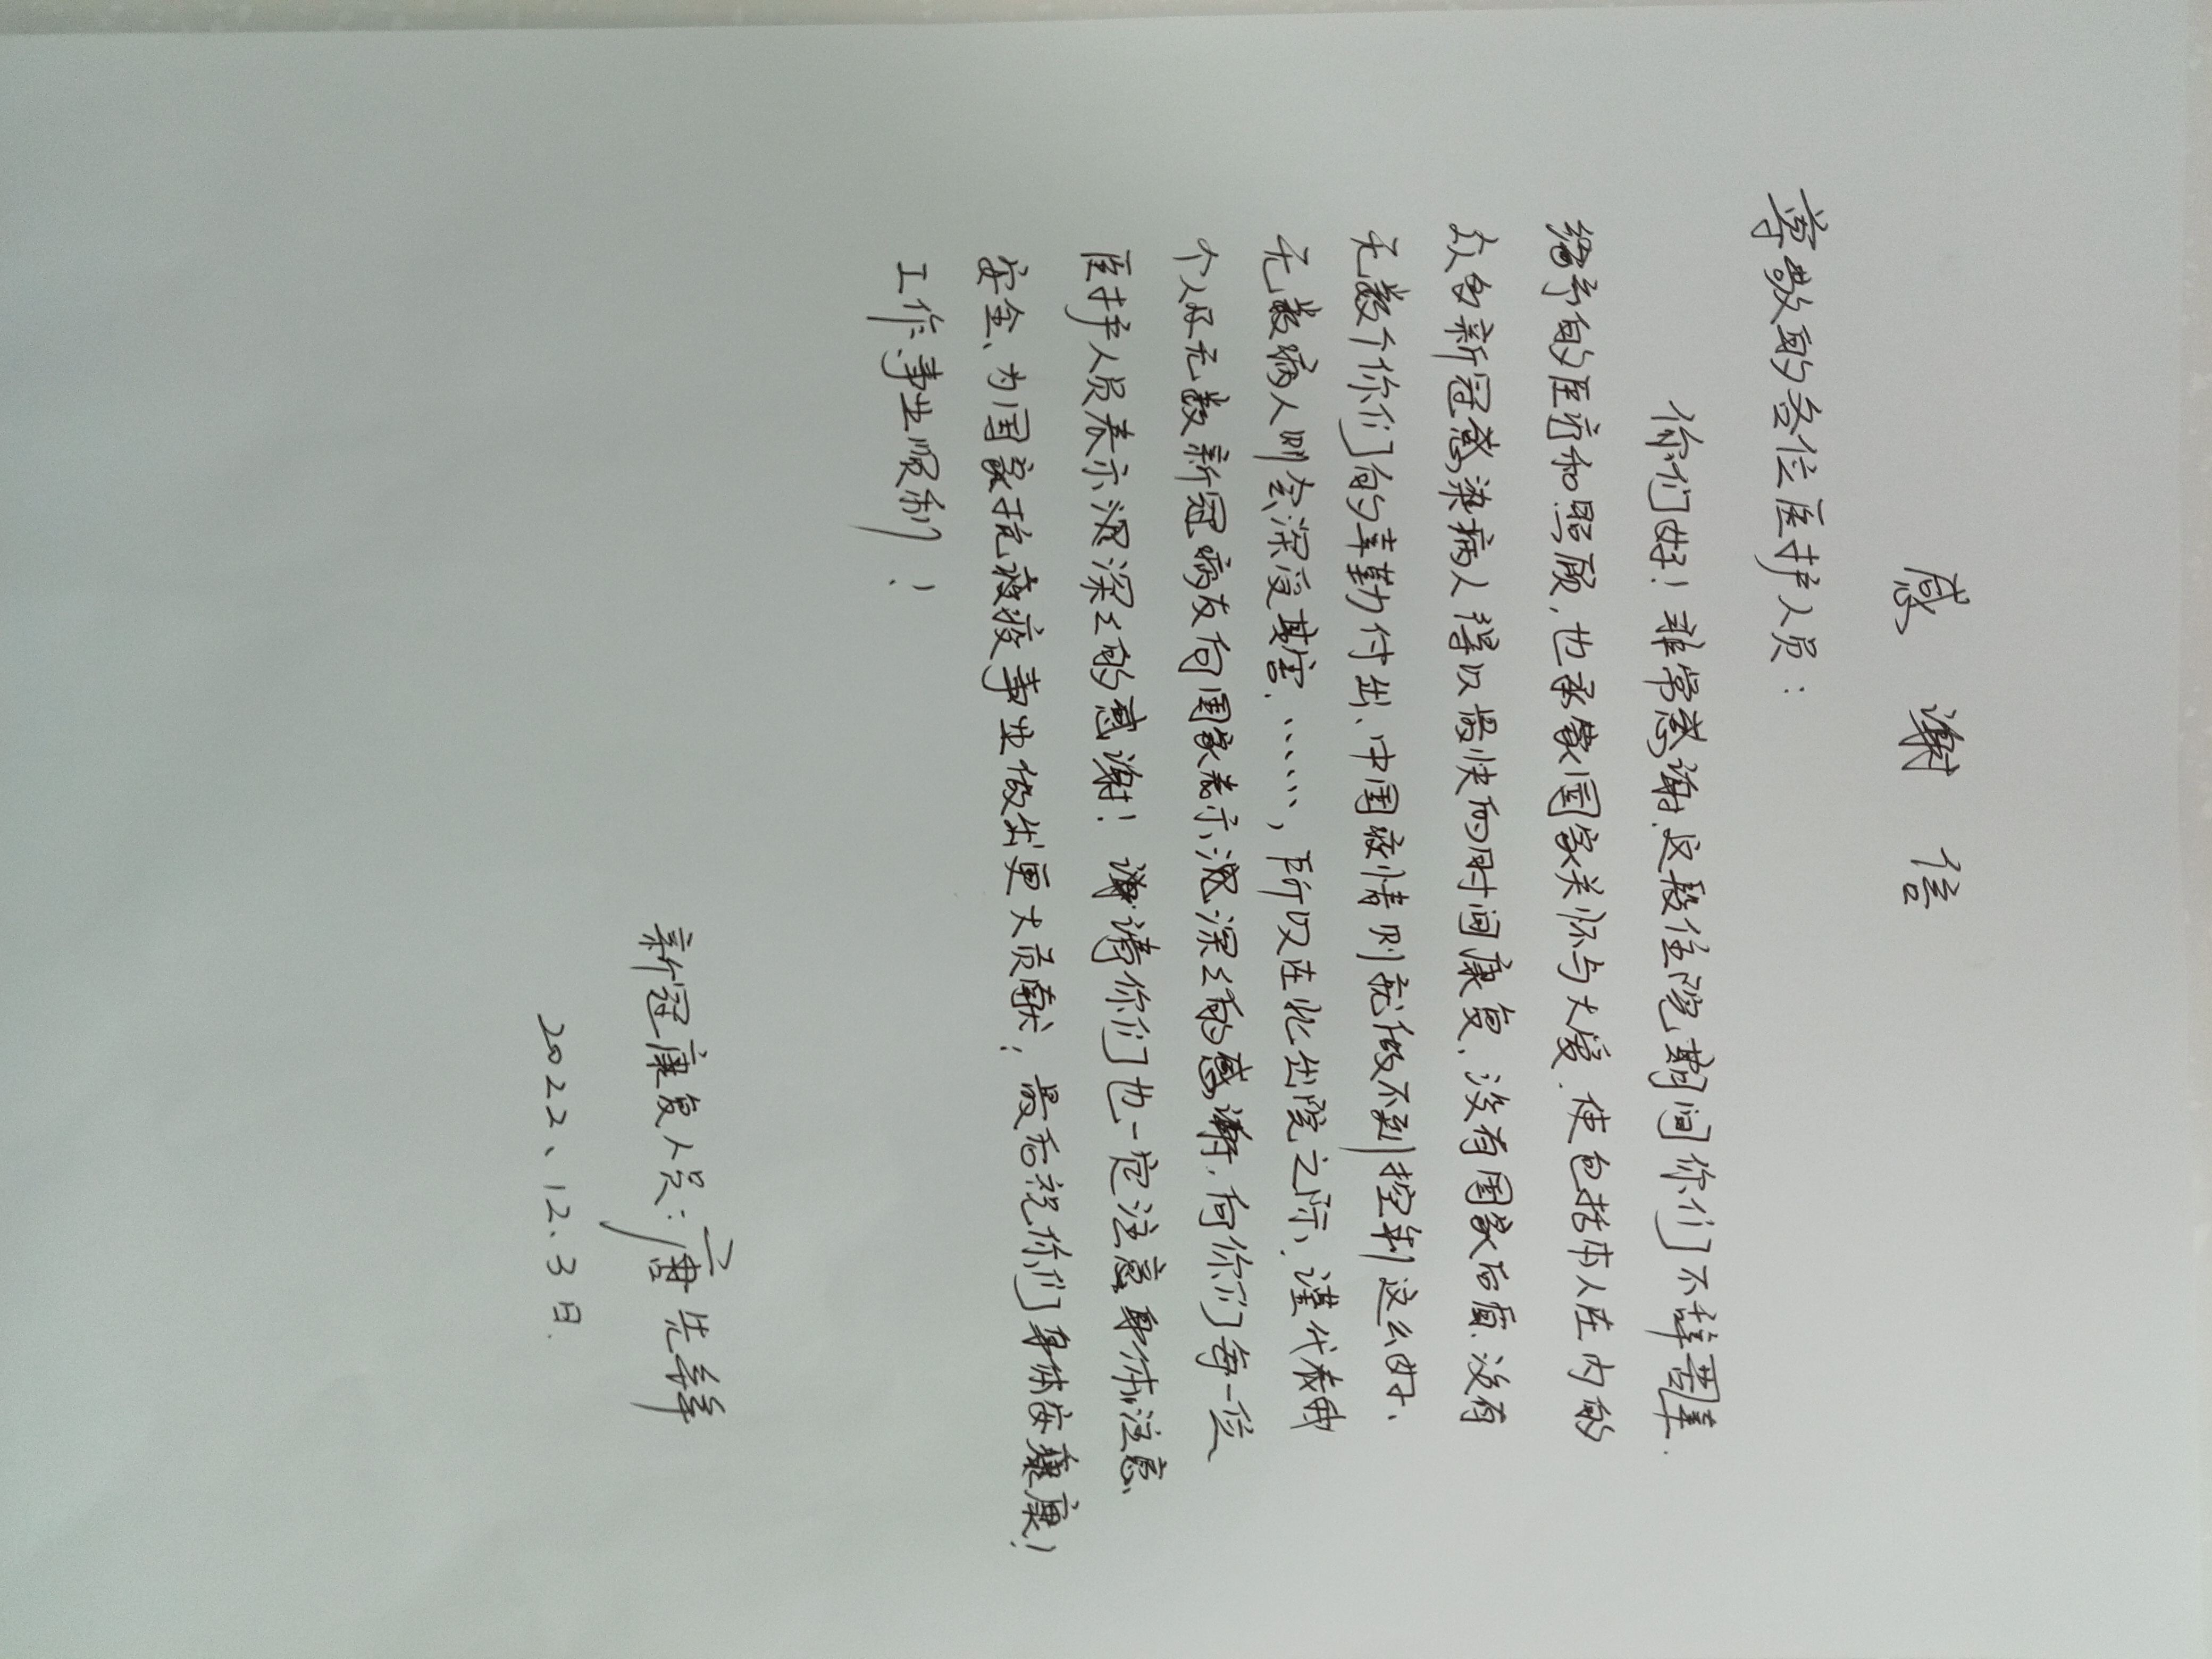 感谢信
尊敬的各位医护人员：
你们好！非常感谢.这段住院期间你们不辞苦辛.
给予的医疗和照顾,也承蒙国家关怀与大爱.使包括本人在内的
众多新冠感染病人得以最快的时间康复.没有国家后盾.没有
无数个你们的辛勤付出、中国疫情则就做不到控制这么好.
无数病人则会深受其害.……,所以在此出院之际、谨代表我
个人及无数新冠病友向国家表示深深的感谢.向你们每一位
医护人员表示深深的感谢！请你们也一定注意身体注意、
安全、为国家抗疫事业做出更大贡献；最后祝你们身体安康！
工作、事业顺利！
新冠康复人员：唐先锋
2022、12.3日.